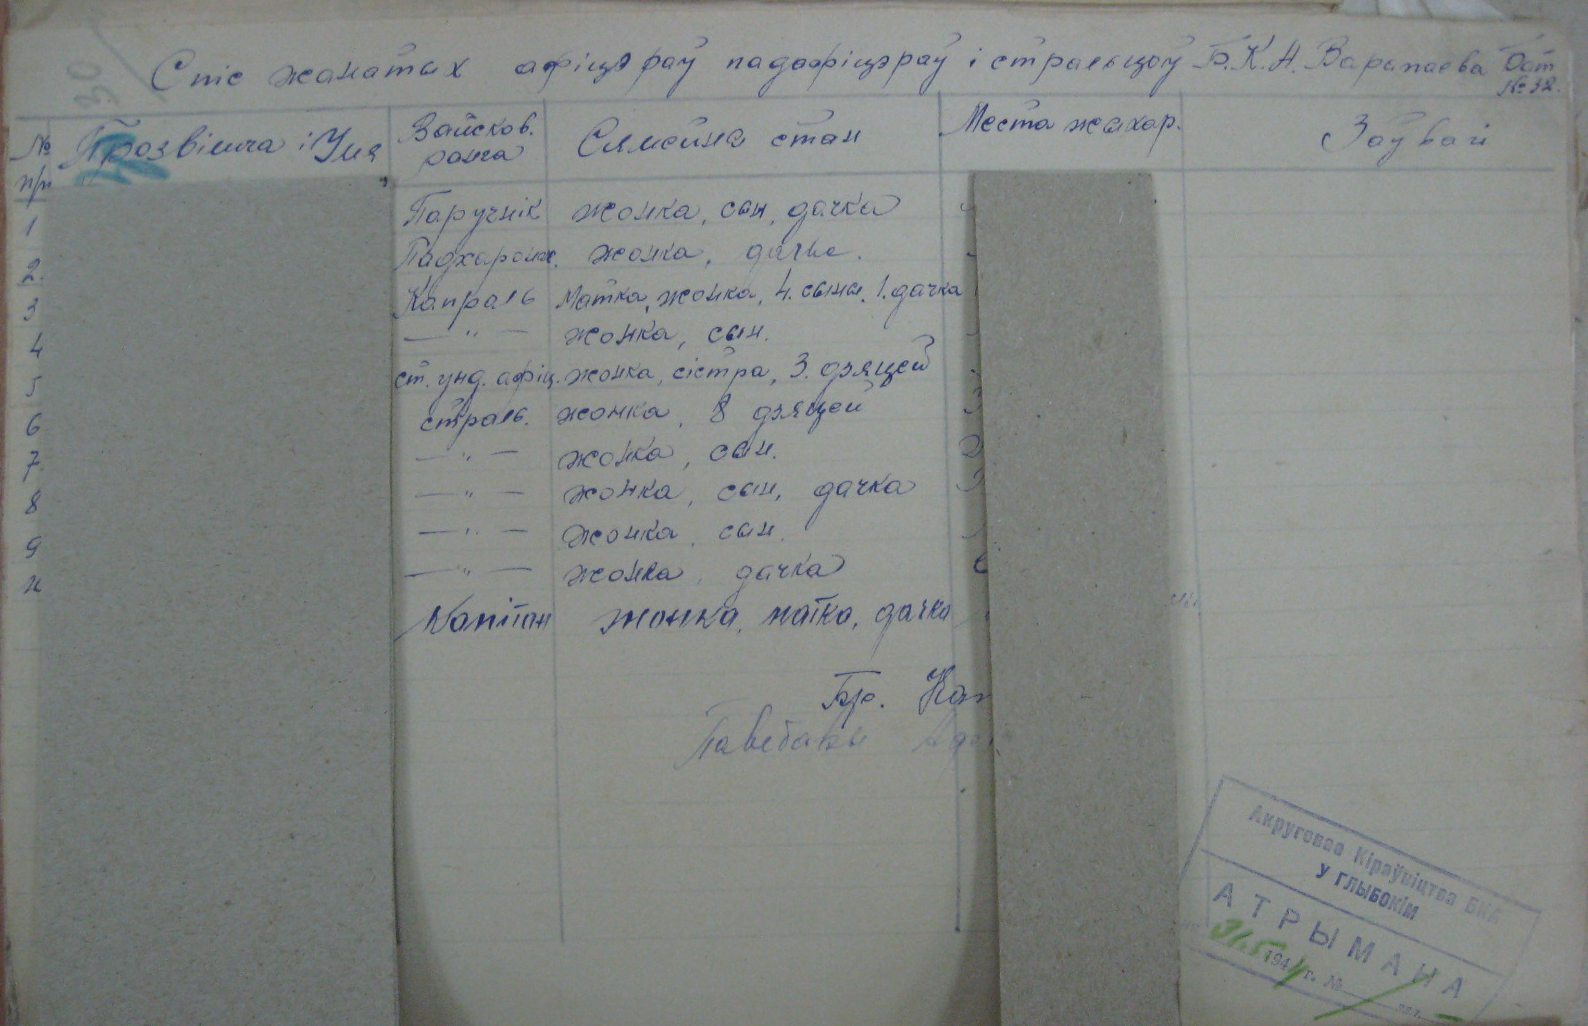 30
Спіс жанатых афіцэраў падафіцэраў і стральцоў Б.К.А. Варапаева Бат № 32.
№ п/п Прозвішча і Імя Вайсков. ранга Сямейна стан Места жыхар. Заўвагі
1 Паручнік жонка, сын, дачка
2. Падхаронж. жонка, дачка.
3 Капраль матка, жонка, 4. сыны, 1. дачка
4 — " — жонка, сын.
5 ст. унд. афіц. жонка, сістра, 3. дзяцей
6 страль. жонка, 8 дзяцей
7 — " — жонка, сын.
8 — " — жонка, сын, дачка
9 — " — жонка, сын.
— " — жонка, дачка
Капітан жонка, матка, дачка
Бр.
Акруговае Кіраўніцтва БКА
У ГЛЫБОКІМ
АТРЫМАНА
31.5 1944 г. №